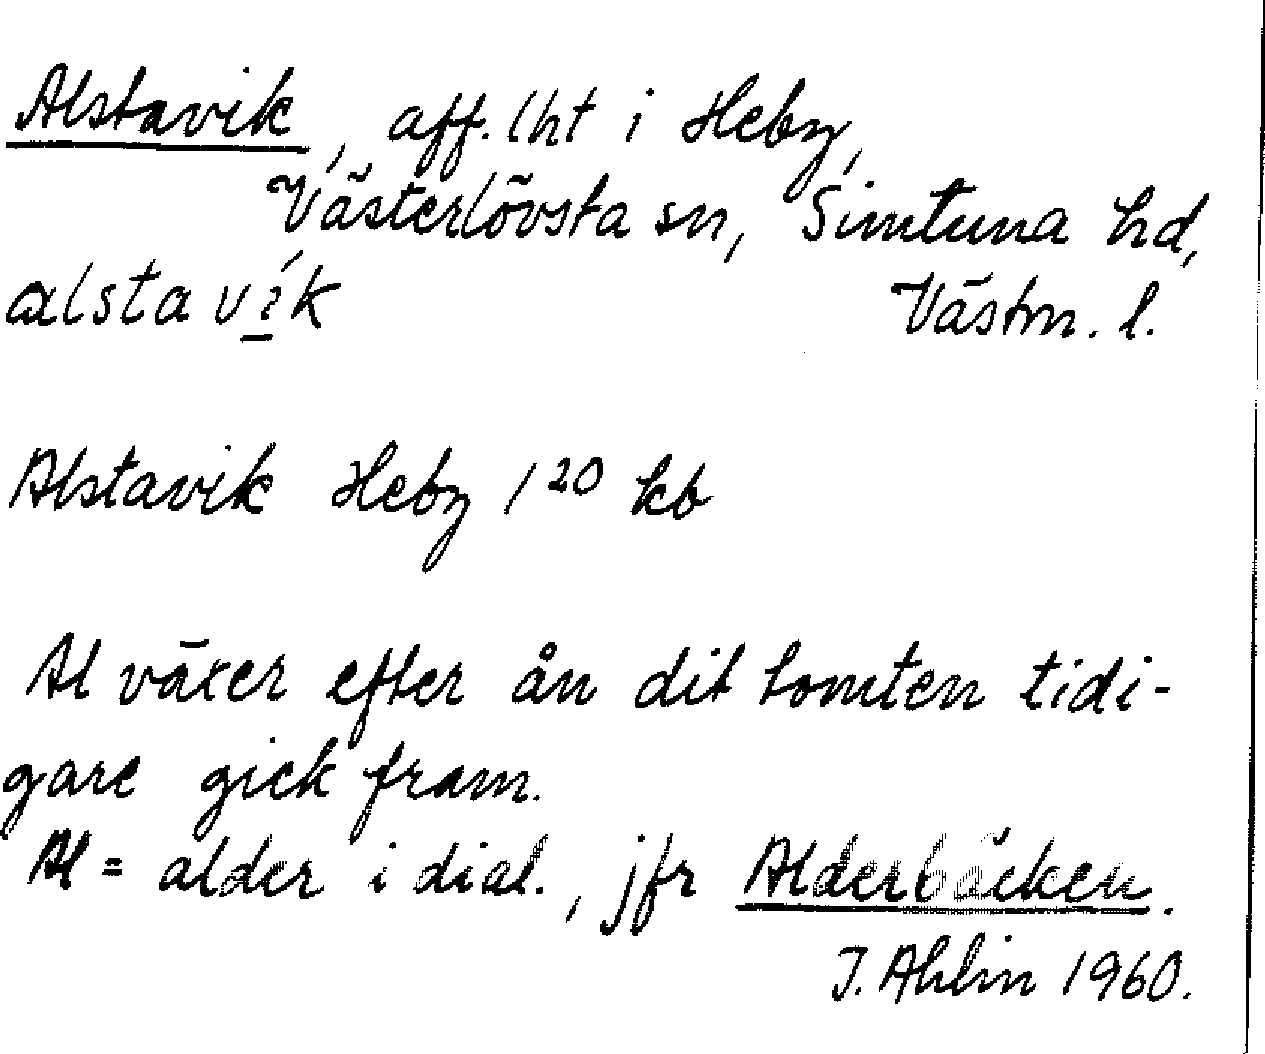 Alstavik, aff. lht i Heby,
Västerlövsta sn, Simtuna hd,
alstaví̲k Västm. l.
Alstavik Heby 1²⁰ kb
Al växer efter ån dit tomten tidi-
gare gick fram.
Al = alder i dial., jfr Alderbäcken.
J. Ahlin 1960.